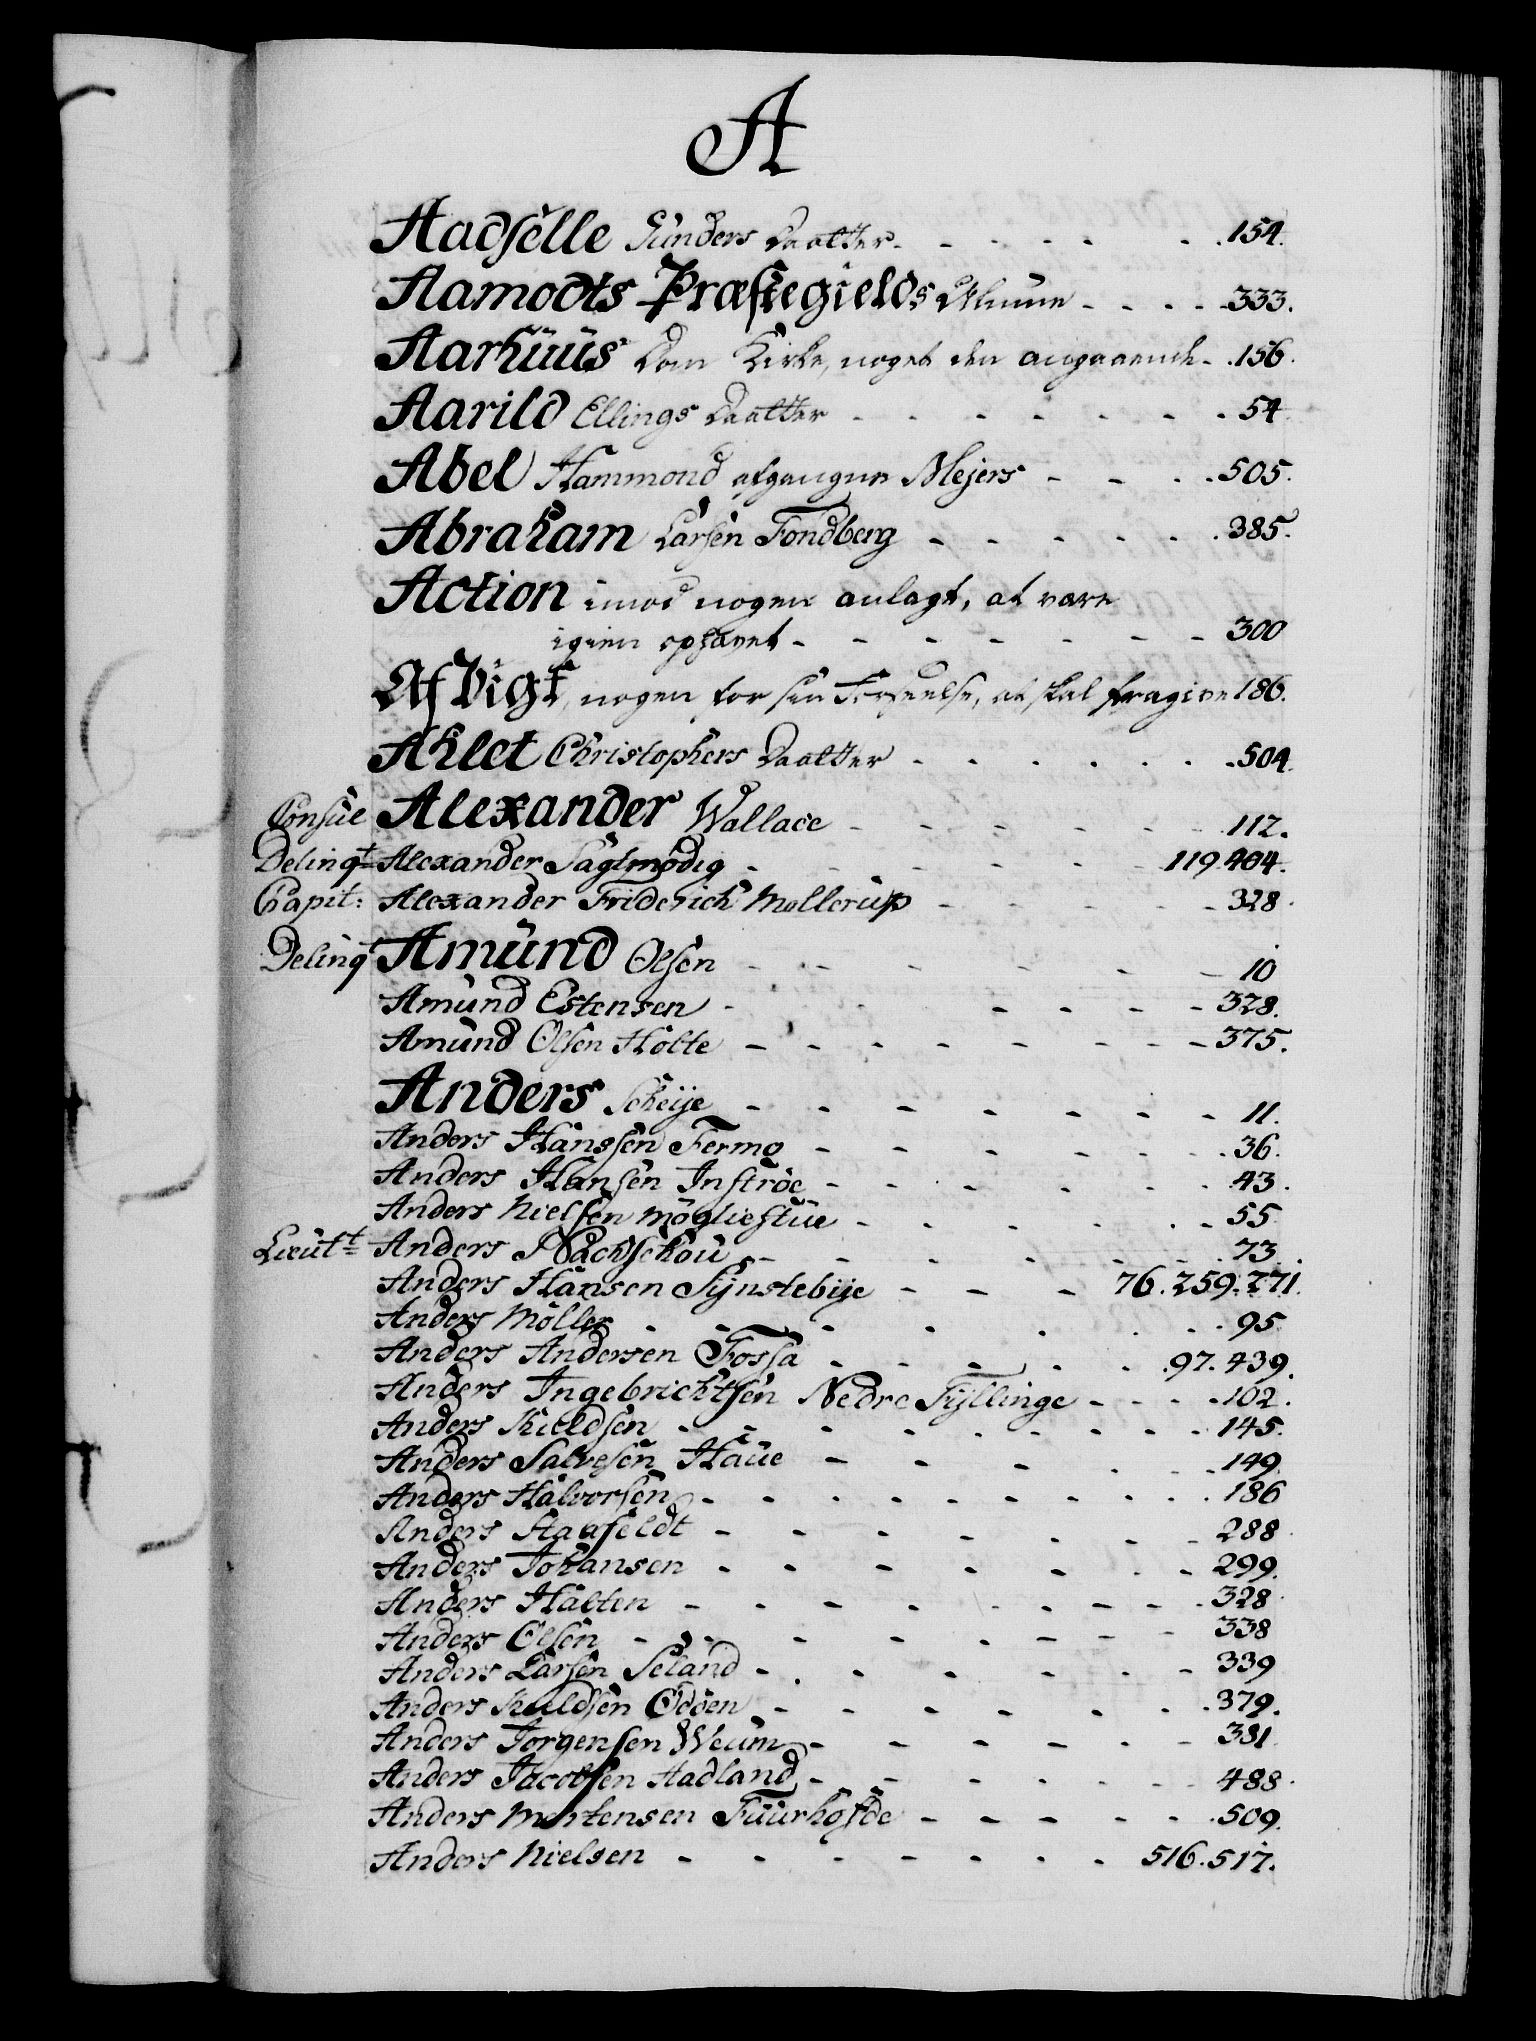 A
Aadselle Gunders Daatter - - - - - 154.
Aamodts Præstegields Almue - - - - 333.
Aarhuus Dom Kirke, noget den angaaende - 156.
Aarild Ellings Daatter - - - - - - - 54.
Abel Hammond afgangne Mejers - - - - 505.
Abraham Larsen Fondberg - - - - - - 385.
Action imod nogen anlagt, at være
igien ophævet - - - - - - - 300
Afbigt, nogen for sin Forseelse, at skal fragive 186.
Ahlet Christophers Daatter - - - - - - 504.
Consul Alexander Wallace - - - - - - 112.
Delinqt Alexander Sagtmodig - - - - - 119.404.
Capit: Alexander Friderich Mollerup - - - - - 328.
Delinqt Amund Olsen - - - - - - 10
Amund Estensen - - - - - - 328.
Amund Olsen Holte - - - - - - - - 375.
Anders Scheije - - - - - - - 11.
Anders Hanssen Fermo - - - - - - - 36.
Anders Hansen Instrøe - - - - - - 43.
Anders Nielsen Mögliestue - - - - - 55
Lieutt Anders Nachschou - - - - - - - 73.
Anders Hansen Sÿnstebÿe - - - 76.259.271.
Anders Möller - - - - - - - - 95
Anders Andersen Fossa - - - - - 97.439.
Anders Ingebrichtsen Nedre Fÿllinge - - - - 102.
Anders Kieldsen - - - - - - - - - 145.
Anders Salvesen Haue - - - - - 149.
Anders Halvorsen - - - - - - - - - 186
Anders Staafeldt - - - - - - - 288.
Anders Johansen - - - - - - - 299.
Anders Halten - - - - - - - - - 328.
Anders Olsen - - - - - - - - 338
Anders Larsen Seland - - - - - - - 339
Anders Kieldsen Odöen - - - - - - - 379.
Anders Jorgensen Weum - - - - - - 381
Anders Jacobsen Hadland - - - - - - - 488.
Anders Mortensen Fuurhofde - - - - - - 509.
Anders Nielsen - - - - - - - 516.517.